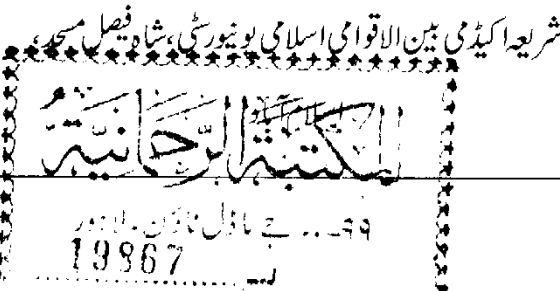 شریعہ اکیڈمی بین الاقوامی اسلامی یونیورسٹی، شاہ فیصل مسجد،
اسلام آباد
المکتبۃ الرحمانیۃ
۹۹۔۔ جے ماڈل ٹاؤن۔ لاہور
19867